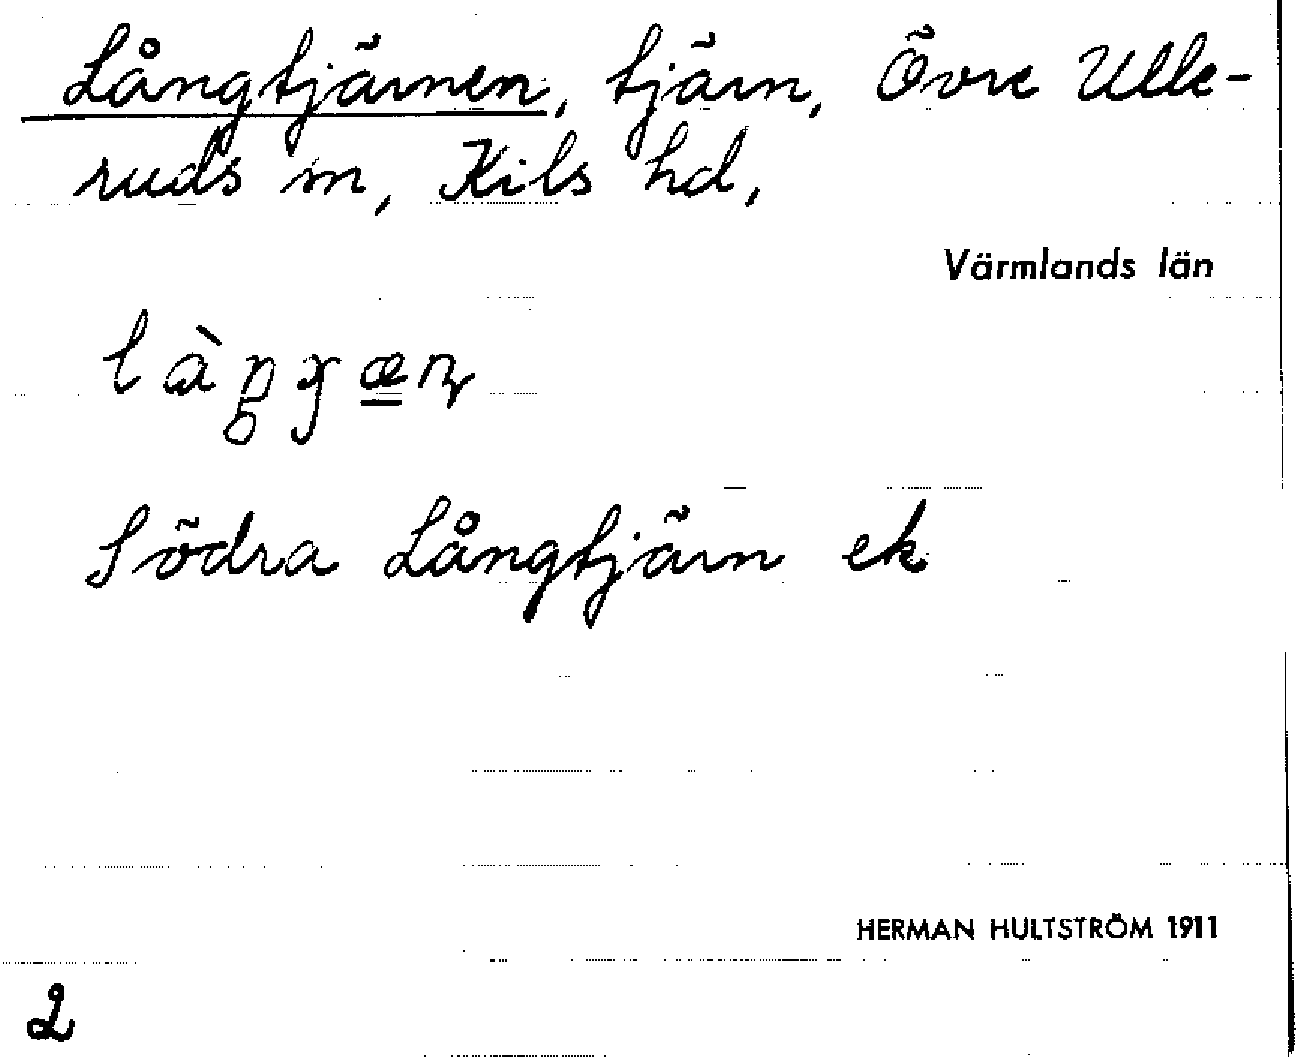 Långtjärnen, tjärn, Övre Ulle-
ruds sn, Kils hd,
Värmlands län
Södra Långtjärn ek
HERMAN HULTSTRÖM 1911
2